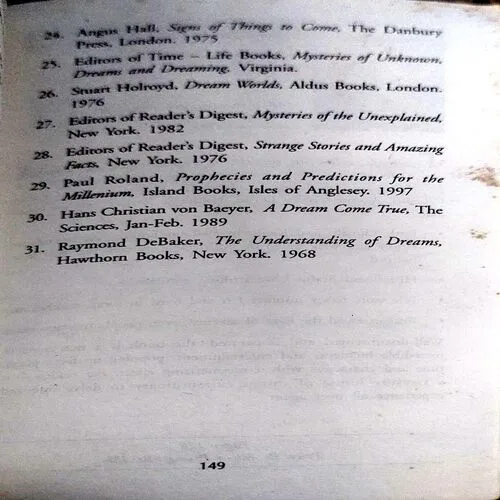 24. Angus Hall, Signs of Things to Come, The Danbury
Press, London. 1975
25. Editors of Time – Life Books, Mysteries of Unknown,
Dreams and Dreaming, Virginia.
26. Stuart Holroyd, Dream Worlds, Aldus Books, London.
1976
27. Editors of Reader's Digest, Mysteries of the Unexplained,
New York. 1982
28. Editors of Reader's Digest, Strange Stories and Amazing
Facts, New York. 1976
29. Paul Roland, Prophecies and Predictions for the
Millenium, Island Books, Isles of Anglesey. 1997
30. Hans Christian von Baeyer, A Dream Come True, The
Sciences, Jan-Feb. 1989
31. Raymond DeBaker, The Understanding of Dreams,
Hawthorn Books, New York. 1968
149